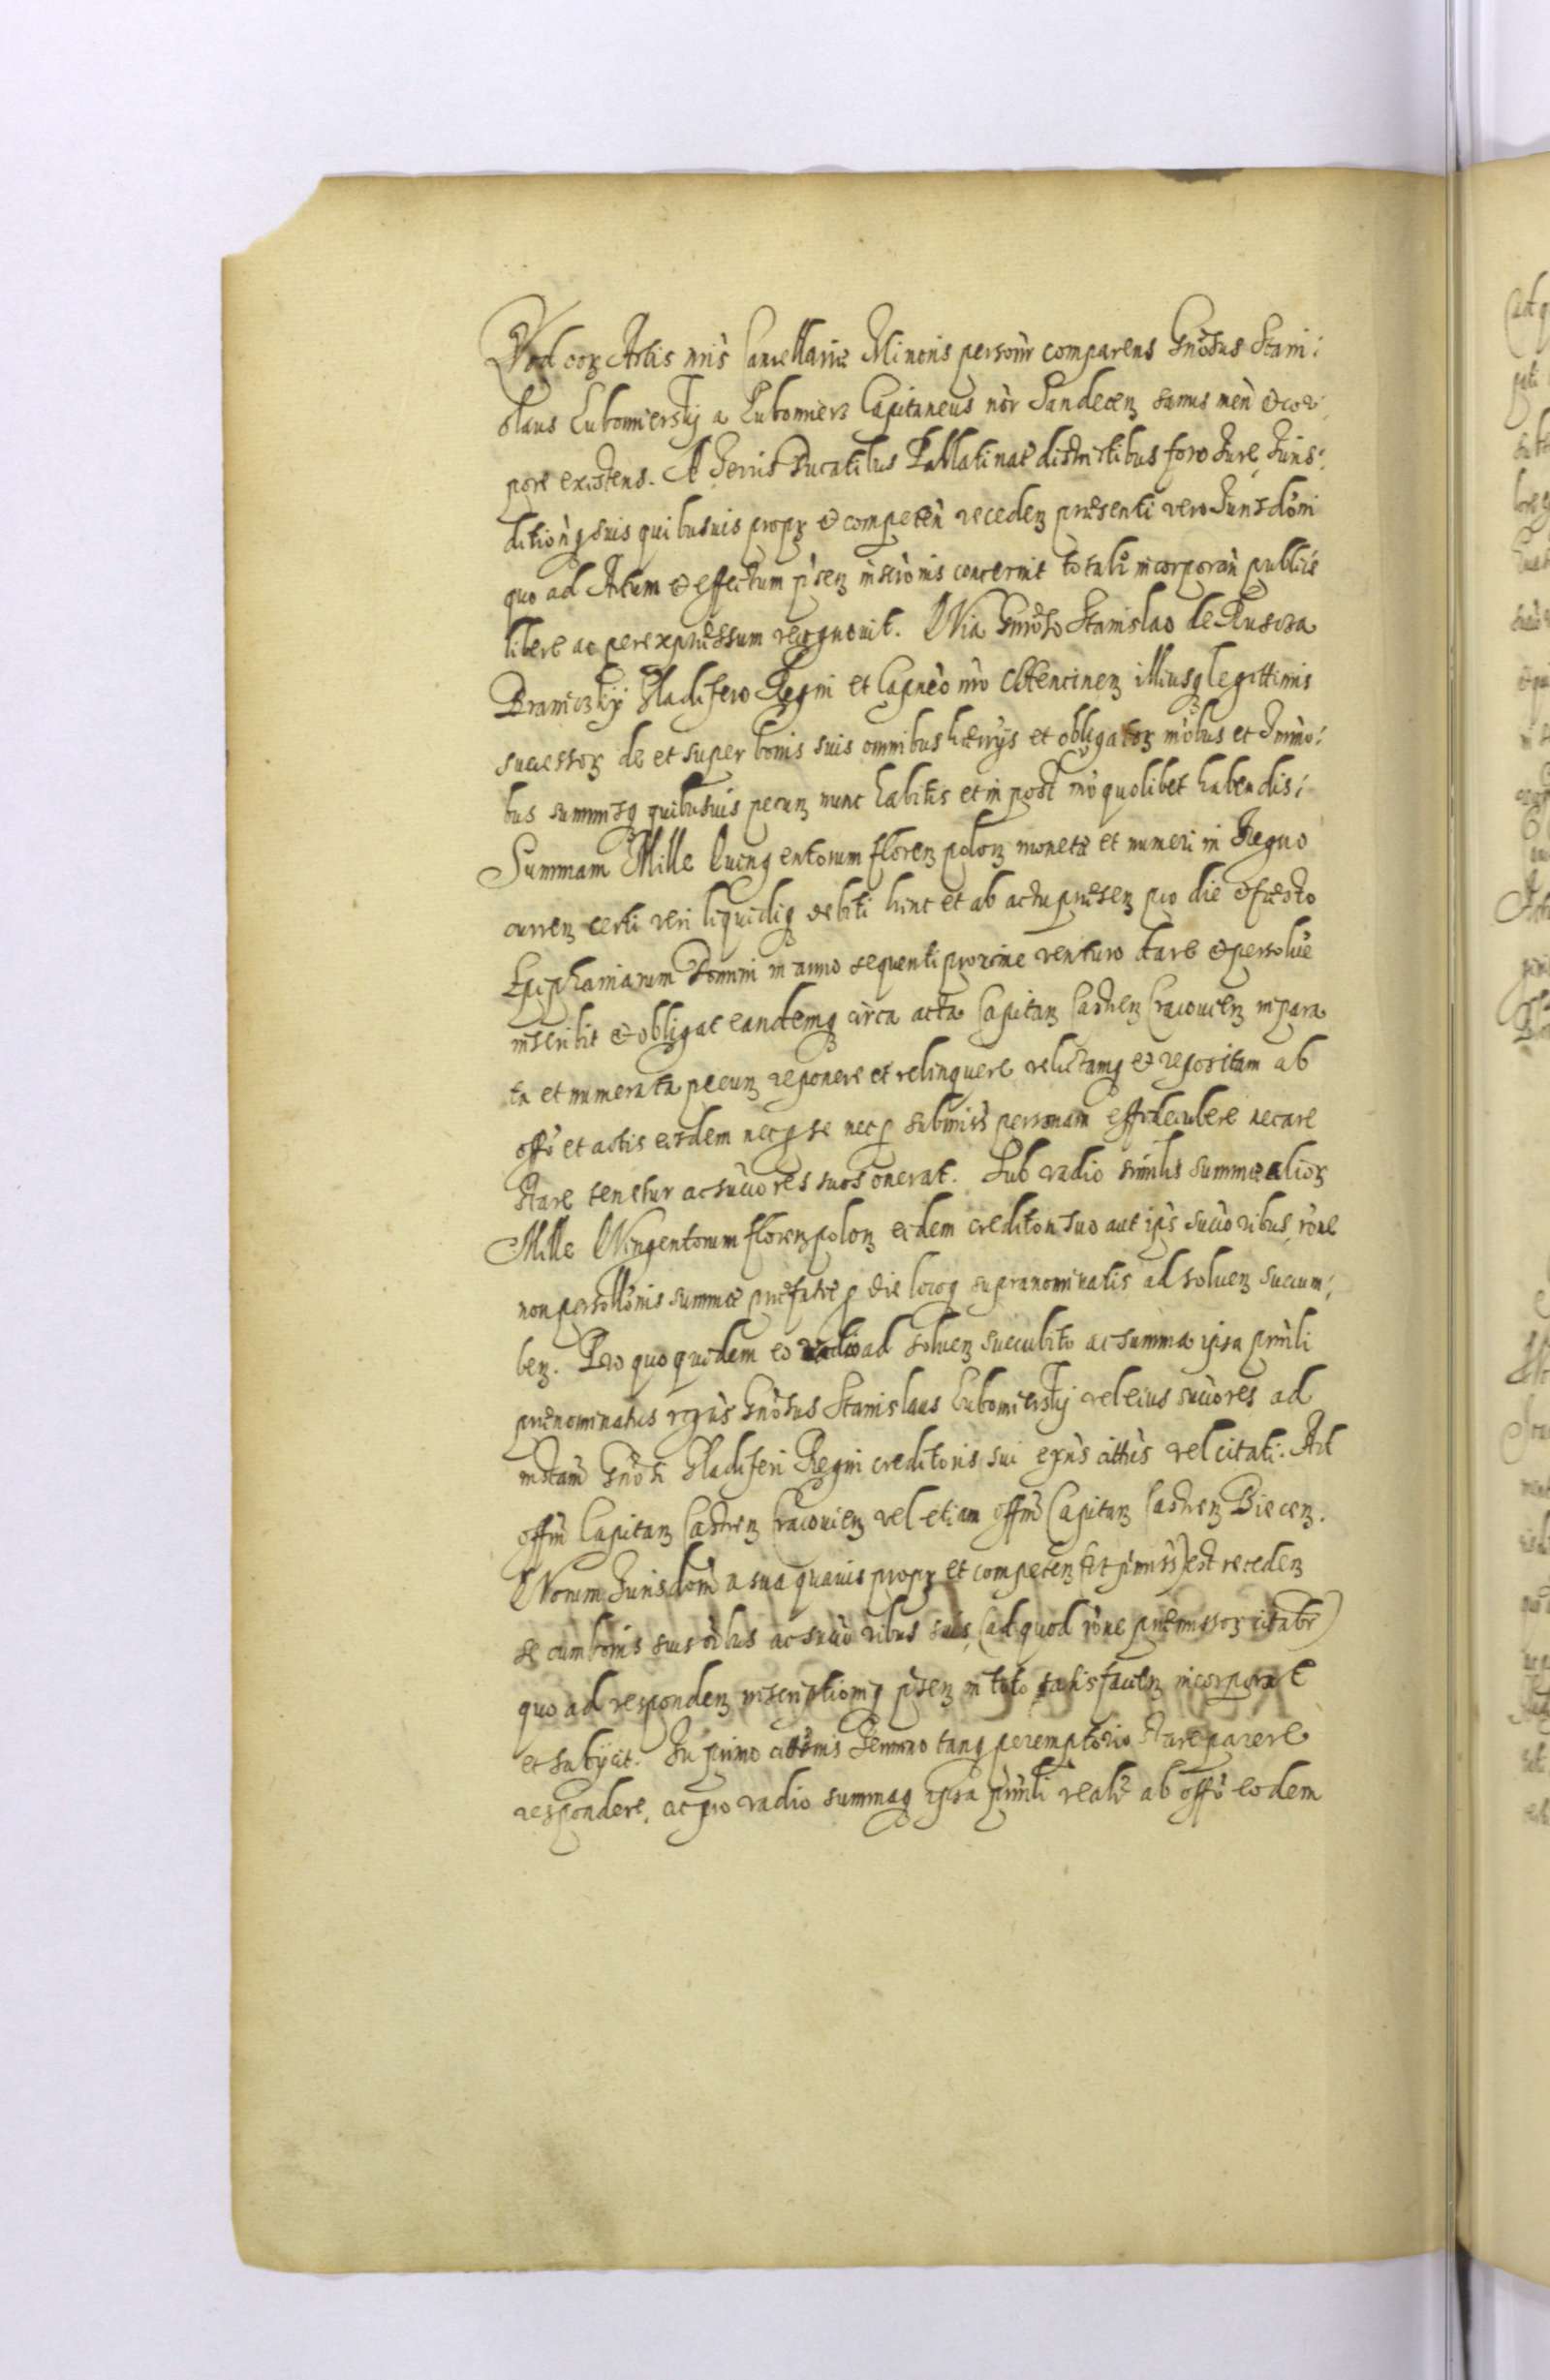 Quod corꝫ Actis nris Cancellariæ Minoris personr comparens Gnosus Stani:
slaus Lubomiersky a Lubomierz Capitaneus nor Sandecenꝫ sanus men et cor
pore existens. A Terris Ducatibus Pallatinat districtibus foro Jure Juris:
ditionqꝫ suis quibusuis propꝫ et competen recedenꝫ præsenti vero Jurisdoni
quo ad Actum et effectum psenꝫ inscronis concernit totalr incorporan publice
libere ac per expressum recognouit. Quia Gnroso Stanislao de Ruscza
Braniczky Gladifero Regni et Capneo nro illiusqꝫ legittimis
successorꝫ de et super bonis suis omnibus hærrijs et obligatorꝫ mobus et Immo:
bus summisqꝫ quibusuis pecunꝫ nunc habitis et in post mo quolibet habendis:
Summam Mille Quingentorum florenꝫ polonꝫ monetæ et numeri in Regno
currenꝫ certi veri liquidiqꝫ debiti hinc et ab actu præsenꝫ pro die et fæsto
Epiphaniarum Domini in anno sequenti proxime venturo dare et persolue
inscribit et obligat eandemqꝫ circa acta Capitanꝫ Castrenꝫ Cracouienꝫ in para
ta et numerata pecunꝫ reponere et relinquere relictamqꝫ et repositam ab
offo et actis eisdem nec p se nec p submiss personam leuare nec are
stare tenetur ac succores suos onerat. Sub vadio similis summæ aliorꝫ
Mille Quingentorum florenꝫ polonꝫ eidem creditori suo aut ips succoribus, rone
non persollonis summæ præfatæ p die locoqꝫ supranominatis ad soluenꝫ succum:
benꝫ. Pro quo quidem eo vadio ad soluenꝫ succubito ac summa ipsa prinli
prænominatus Gnosus Stanislaus Lubomiersky vel eius succores ad
instam Gnosi Gladiferi Regni creditoris sui citths vel citati. Ad
offm Capitanꝫ Castrenꝫ Cracouienꝫ vel etiam offm Capitanꝫ Castrenꝫ Biecenꝫ.
Quorum Jurisdom a sua quauis propꝫ et competenꝫ (ut pmiss) est recedenꝫ
se cum bonis suis oibus ac succoribus suis, (ad quod rone præmissorꝫ citabr)
quo ad respondenꝫ inscriptioniqꝫ psenꝫ in toto satisfacienꝫ incorporat
et subijcit. In primo cittonis Termino tanqꝫ peremptorio stare parere
respondere, ac pro vadio summaqꝫ ipsa prinli realr ab offo eodem